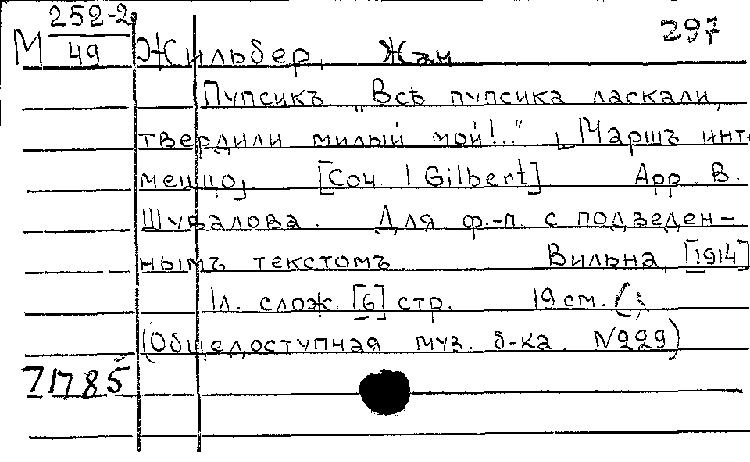 М 252-2 297
49 Жильбер, Жан
Пупсикъ „Всѣ пупсика ласкали,
твердили милый мой!.." [Маршъ инте
меццо]. [Соч.] Gilbert]. Арр. В.
Шувалова. Для ф.-п. с подведен-
нымъ текстомъ. Вильна, [1914]
1л. слож. [6] стр. 19 см.
(Общедоступная муз. б-ка. №229)
71785